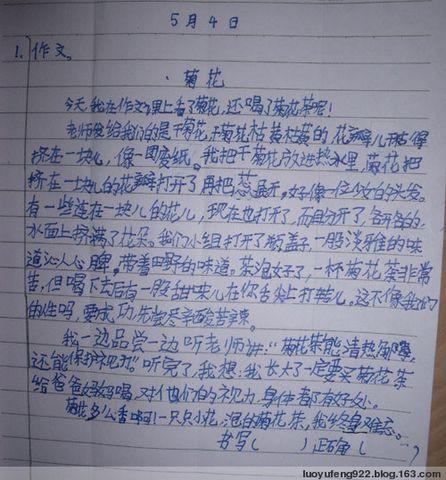 5月4日
1. 作文。
菊花
今天,我在作文课上看了菊花,还喝了菊花茶呢!
老师发给我们的是干菊花,干菊花枯黄枯黄的,花瓣儿干枯得
挤在一块儿,像一团废纸。我把干菊花放进热水里,菊花把
挤在一块儿的花瓣打开了,再把蕊展开,好像一位少女的头发。
有一些连在一块儿的花儿,现在也打开了,而且分开了,各开各的,
水面上挤满了花朵。我们小组打开了杯盖子,一股淡雅的味
道沁人心脾,带着田野的味道。茶泡好了,一杯菊花茶非常
苦,但喝下去后有一股甜味儿在你舌头上打转儿。这不像我们
的性吗,要成功,先尝尽辛酸苦辣。
我一边品尝一边听老师讲:“菊花茶能清热解毒,
还能保护视力。”听完了,我想:我长大了一定要买菊花茶
给爸爸妈妈喝,对他们的视力、身体都有好处。
菊花多么香啊!一只只小花,泡的菊花茶,我终身难忘。
书写( ) 正确( )
luoyufeng922.blog.163.com